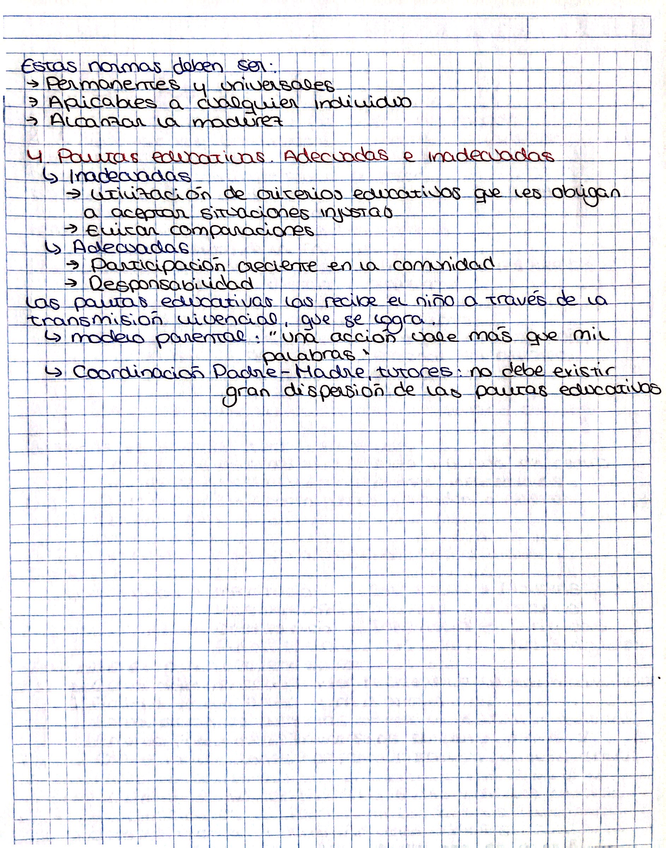 Estas normas deben ser:
→ Permanentes y universales
→ Aplicables a cualquier individuo
→ Alcanzar la madurez
4. Pautas educativas. Adecuadas e inadecuadas
↳ Inadecuadas
→ Utilización de criterios educativos que les obligan
a aceptar situaciones injustas
→ Evitar comparaciones
↳ Adecuadas
→ Participación creciente en la comunidad
→ Responsabilidad
Las pautas educativas las recibe el niño a través de la
transmisión vivencial, que se logra.
↳ modelo parental: "una acción vale más que mil
palabras"
↳ Coordinación Padre-Madre, tutores: no debe existir
gran dispersión de las pautas educativas